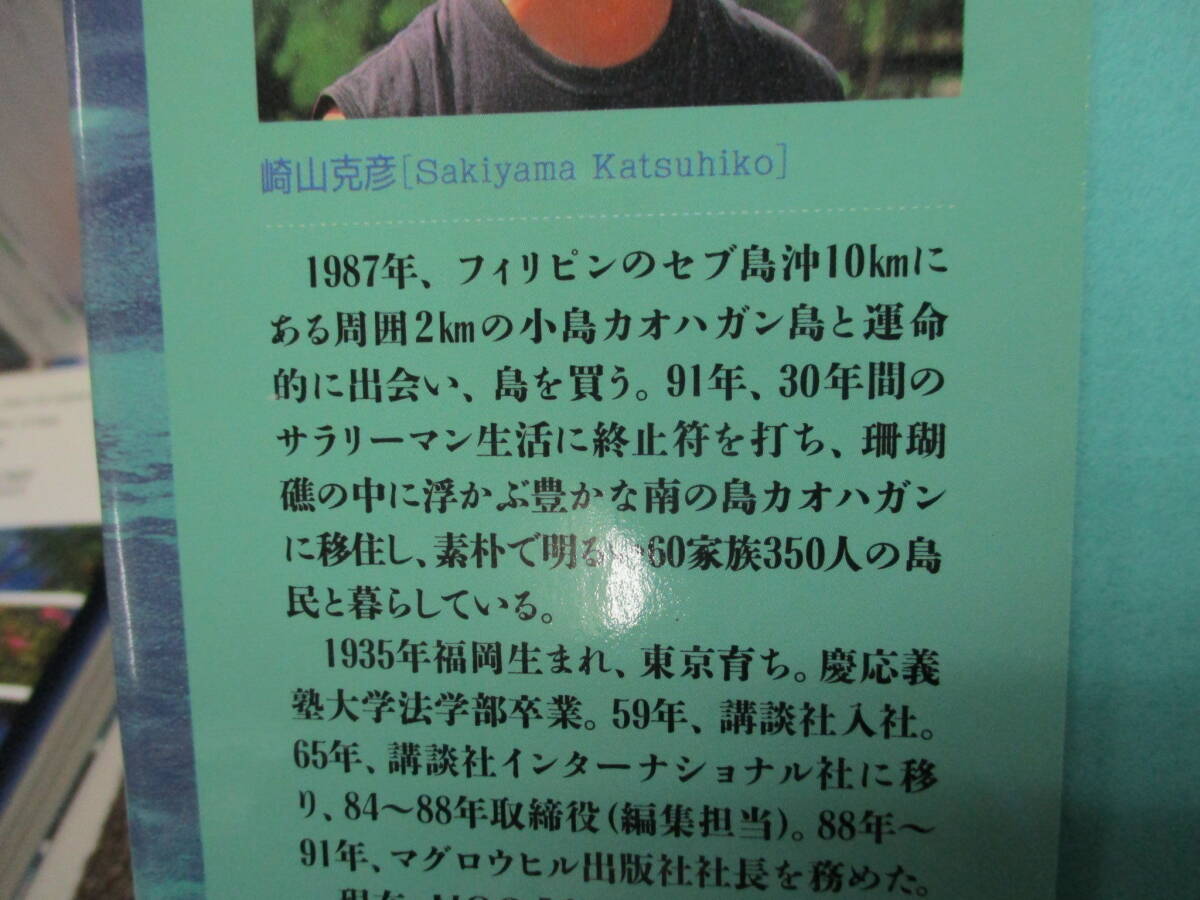 崎山克彦[Sakiyama Katsuhiko]
1987年、フィリピンのセブ島沖10kmに
ある周囲2kmの小島カオハガン島と運命
的に出会い、島を買う。91年、30年間の
サラリーマン生活に終止符を打ち、珊瑚
礁の中に浮かぶ豊かな南の島カオハガン
に移住し、素朴で明る 60家族350人の島
民と暮らしている。
1935年福岡生まれ、東京育ち。慶応義
塾大学法学部卒業。59年、講談社入社。
65年、講談社インターナショナル社に移
り、84〜88年取締役(編集担当)。88年〜
91年、マグロウヒル出版社社長を務めた。